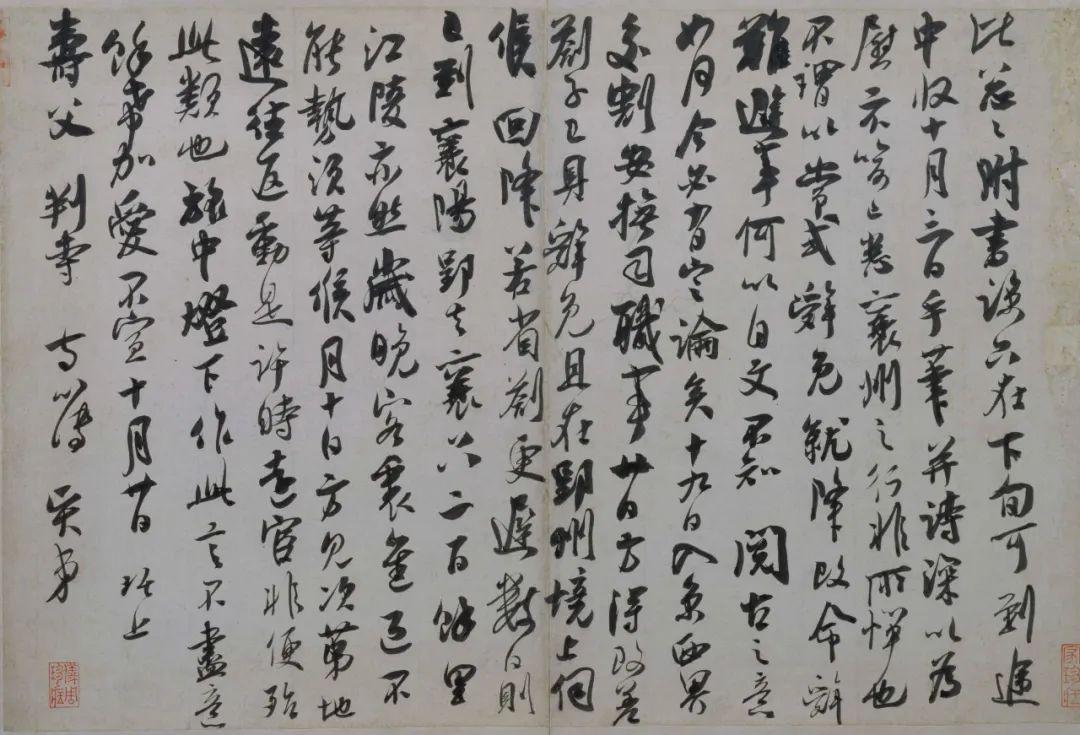 比忩忩附書談只在下旬可到逓
中收十月三日手筆并詩深以為
慰示喻已悉襄州之行非所憚也
不謂以常式辭免就降改命辭
難避事何以自文不知閱古之意
如月令必有定論矣十九日入京西界
交割安撫司職事廿日方得改差
劄子已具辭免且在郢州境上伺
候回降若省劄更遲數日則
已到襄陽郢去襄八二百餘里
江陵亦然歲晚容裹當已不
能熱須等候月十日方見次第地
遠往返動是許時遠官非便殆
此類也旅中燈下作此言不盡意
餘希加愛不宣十月廿日 琚上
壽父判寺 吴弟